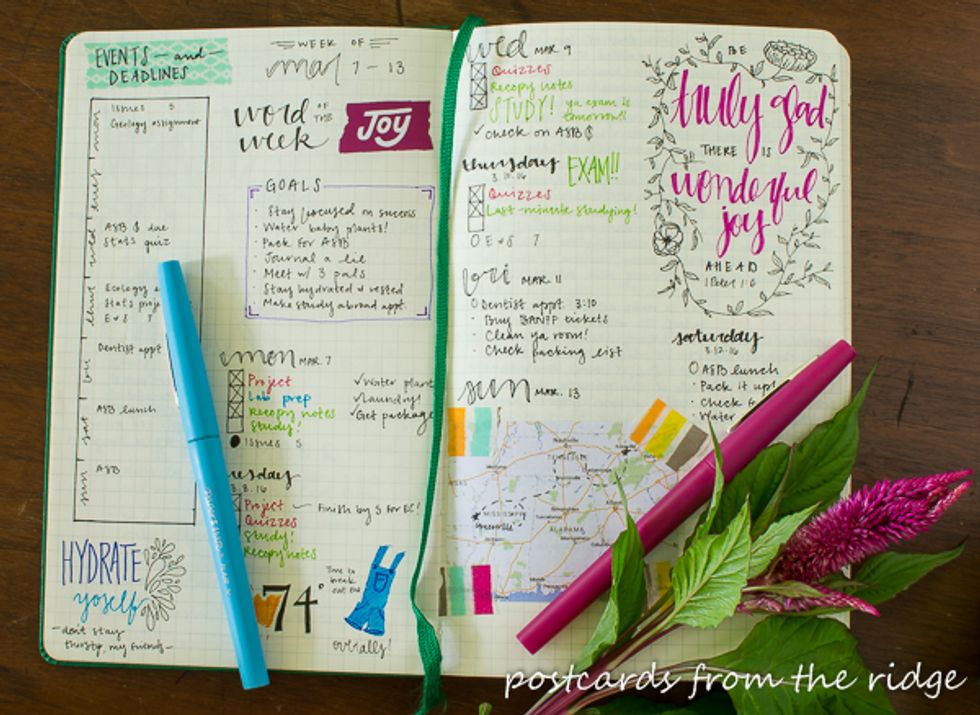 EVENTS — and —
DEADLINES
mon
Issues 5
Geology assignment
tues
wed
ASB $ due
Stats quiz
thur
Ecology
Stats proj
E & S 7
Dentist appt
sat
ASB lunch
sun
ASB
HYDRATE
yoself
-don't stay
thirsty, my friends-
WEEK OF
mar 7 - 13
word OF THE
week
Joy
GOALS
· Stay focused on success
· Water baby plants!
· Pack for ASB
· Journal a lil
· Meet w/ 3 pals
· Stay hydrated & rested
· Make study abroad appt.
mon MAR. 7
Project
Lab prep
Recopy notes
Study!
Issues 5
✓Water plant
✓Laundry!
✓Get package
uesday
3.8.16
Project — Finish by 5 for EC!
Quizzes
Study!
Recopy notes
74°
Time to
break
out the
overalls!
wed MAR. 9
Quizzes
Recopy notes
STUDY! ya exam is
tomorrow!!
✓ check on ASB $
thursday
3.10.16
EXAM!!
Quizzes
Last-minute studying!
O E & S 7
fri MAR. 11
O Dentist appt. 3:10
· Buy tickets
· Clean ya room!
· Check packing list
sun MAR. 13
TENNESSEE
MISSISSIPPI
Greenville
ALABAMA
BE
truly glad
THERE IS
wonderful
joy
AHEAD
1 Peter 1:6
saturday
3.12.16
O ASB lunch
· Pack it up!
· Check
· Water
postcards from the ridge